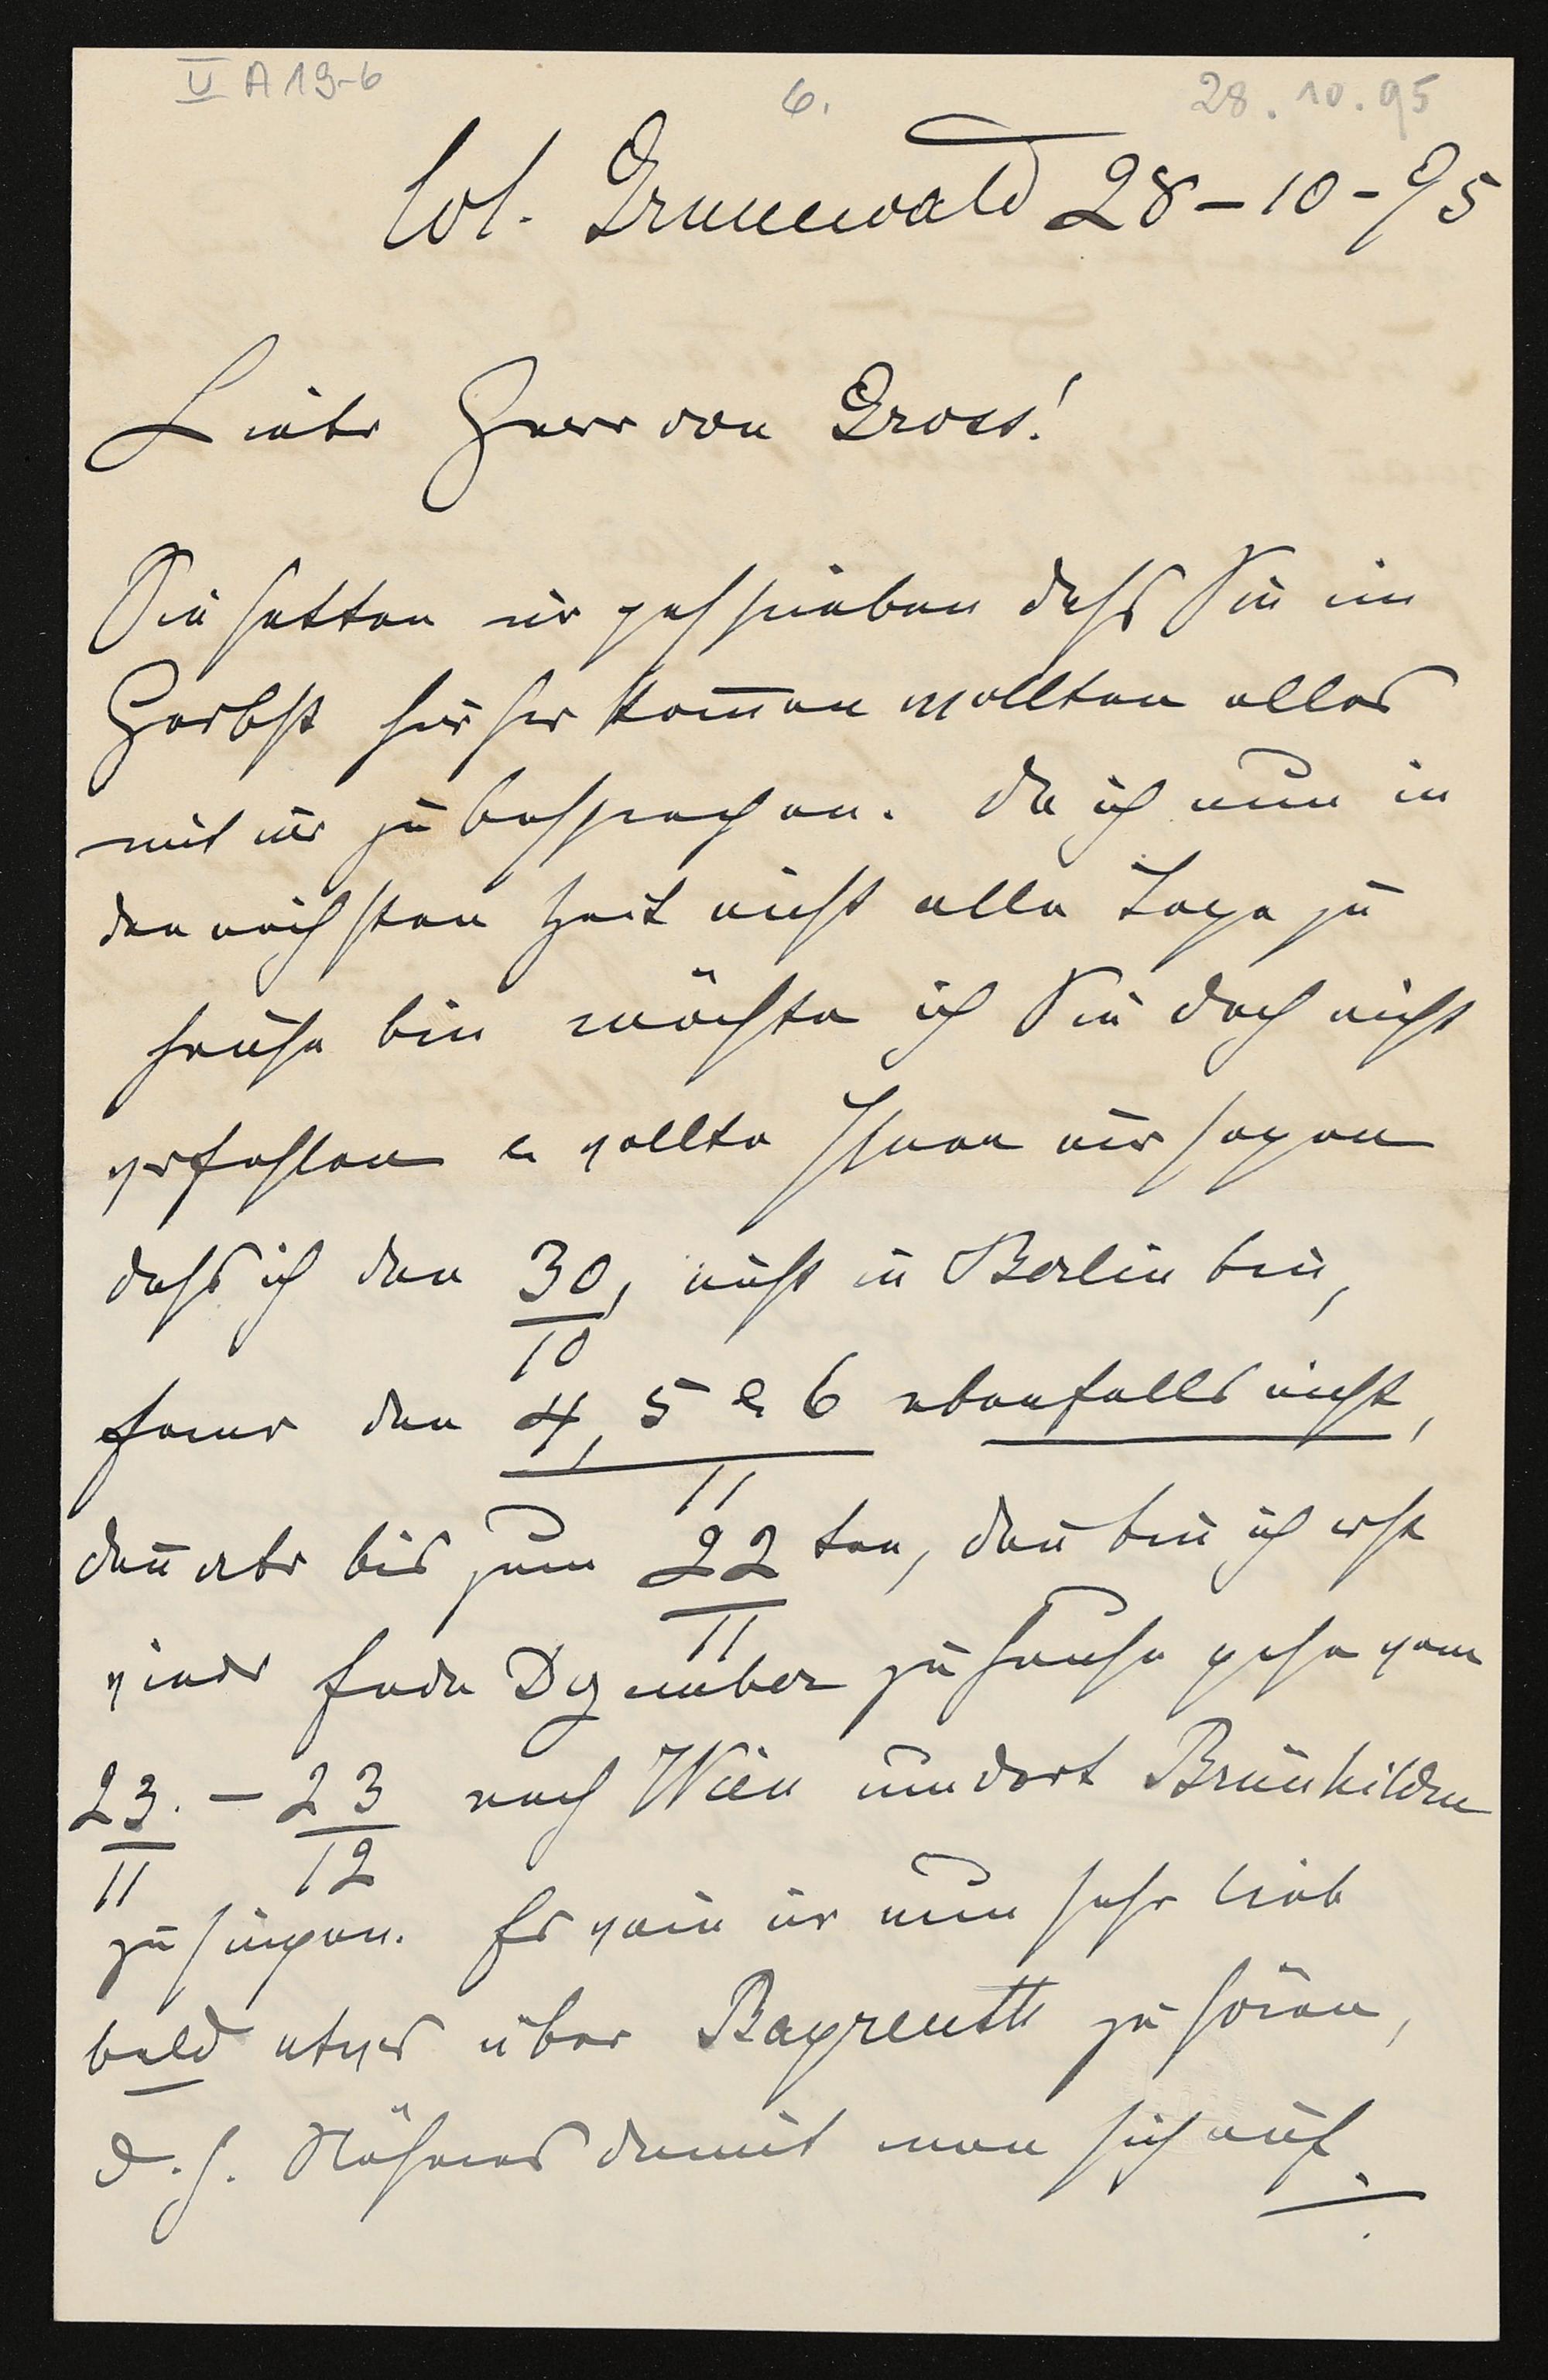 V A 19-6 6. 28.10.95
Col. Grunewald 28-10-95
Lieber Herr von Gross!
Sie hatten mir geschrieben dass Sie im
Herbst hierher kom̄en wollten alles
mit mir zu besprechen. Da ich nun in
der nächsten Zeit nicht alle Tage zu
hause bin möchte ich Sie doch nicht
verfehlen & wollte Ihnen nur sagen
dass ich den 30/10, nicht in Berlin bin,
ferner den 4, 5 & 6/11 ebenfalls nicht,
dan̄ aber bis zum 22/11 ten, dan̄ bin ich erst
wieder Ende Dezember zu hause gehe vom
23./11 - 23/12 nach Wien um dort Brünhilden
zu singen. Es wäre mir nun sehr lieb
bald etwas über Bayreuth zu hören,
d.h. Näheres damit man sich auf